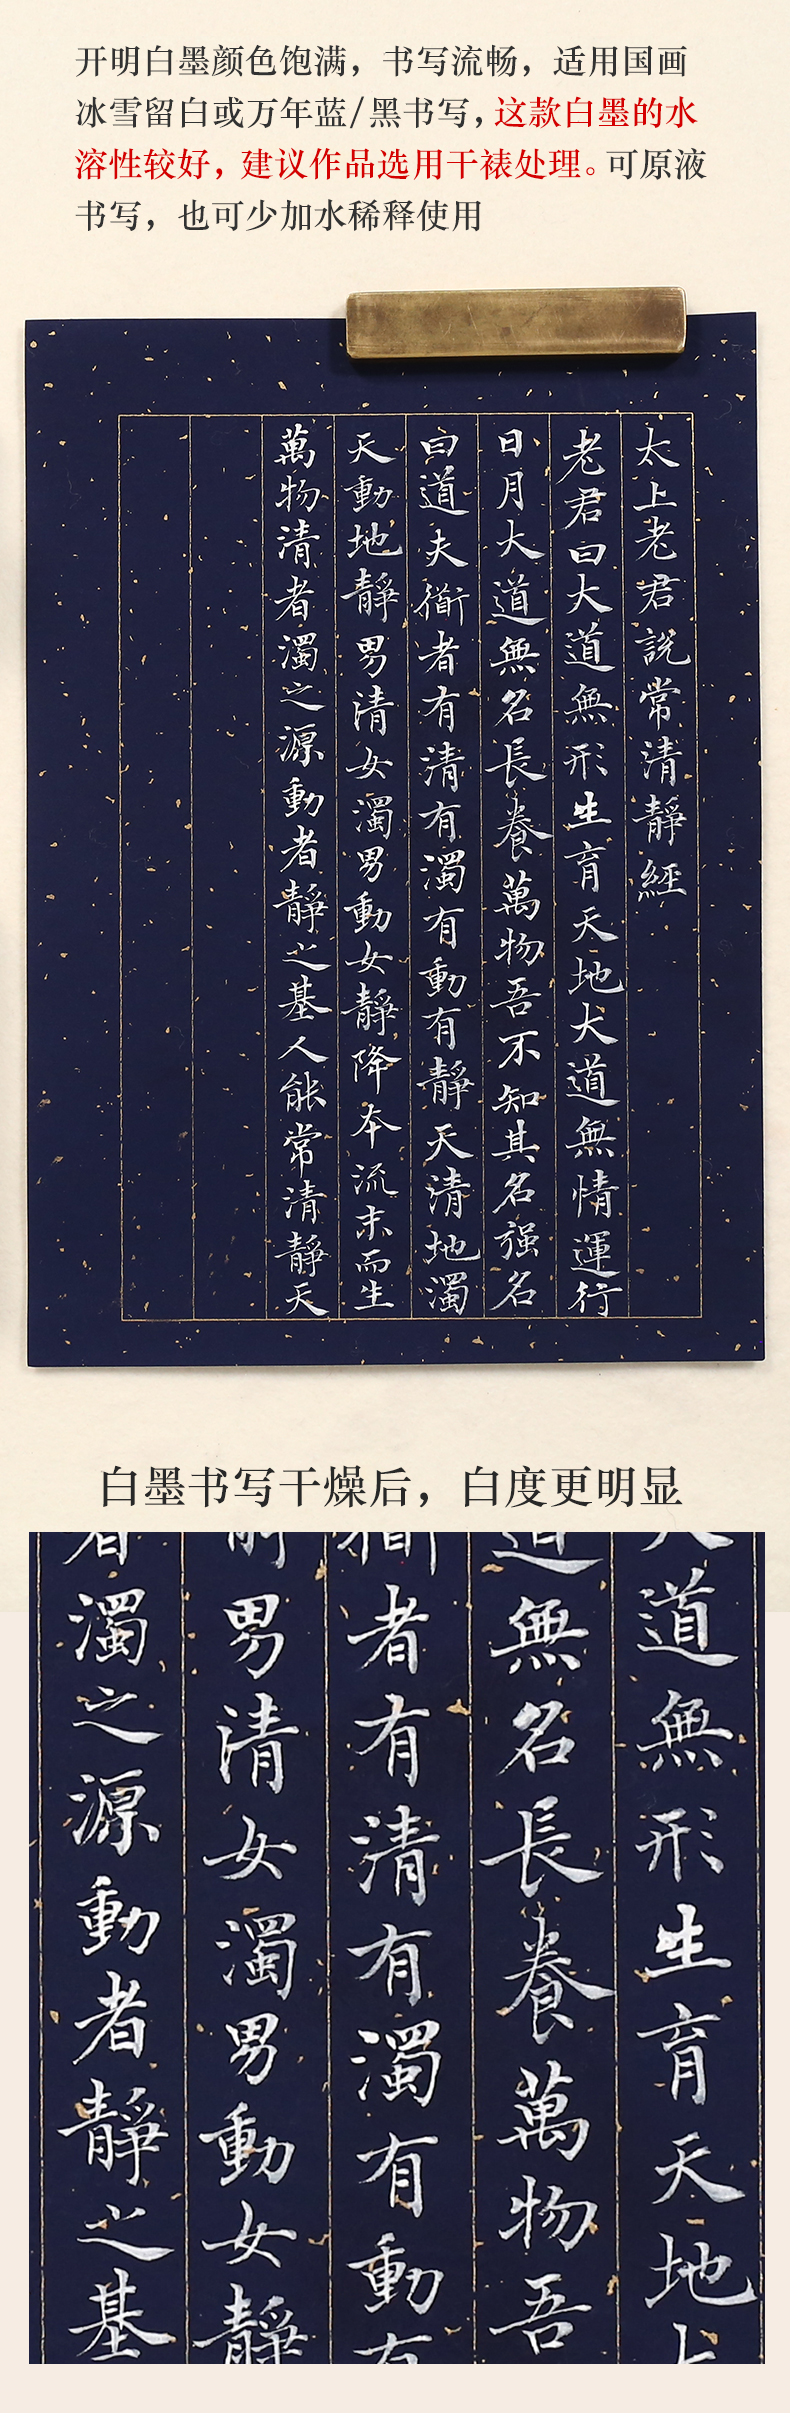 开明白墨颜色饱满，书写流畅，适用国画
冰雪留白或万年蓝/黑书写，这款白墨的水
溶性较好，建议作品选用干裱处理。可原液
书写，也可少加水稀释使用
太上老君説常清靜經
老君曰大道無形生育天地大道無情運行
日月大道無名長養萬物吾不知其名强名
曰道夫衜者有清有濁有動有靜天清地濁
天動地靜男清女濁男動女靜降本流末而生
萬物清者濁之源動者靜之基人能常清靜天
白墨书写干燥后，白度更明显
大道無形生育天地
道無名長養萬物吾
衜者有清有濁有動有
男清女濁男動女靜
者濁之源動者靜之基